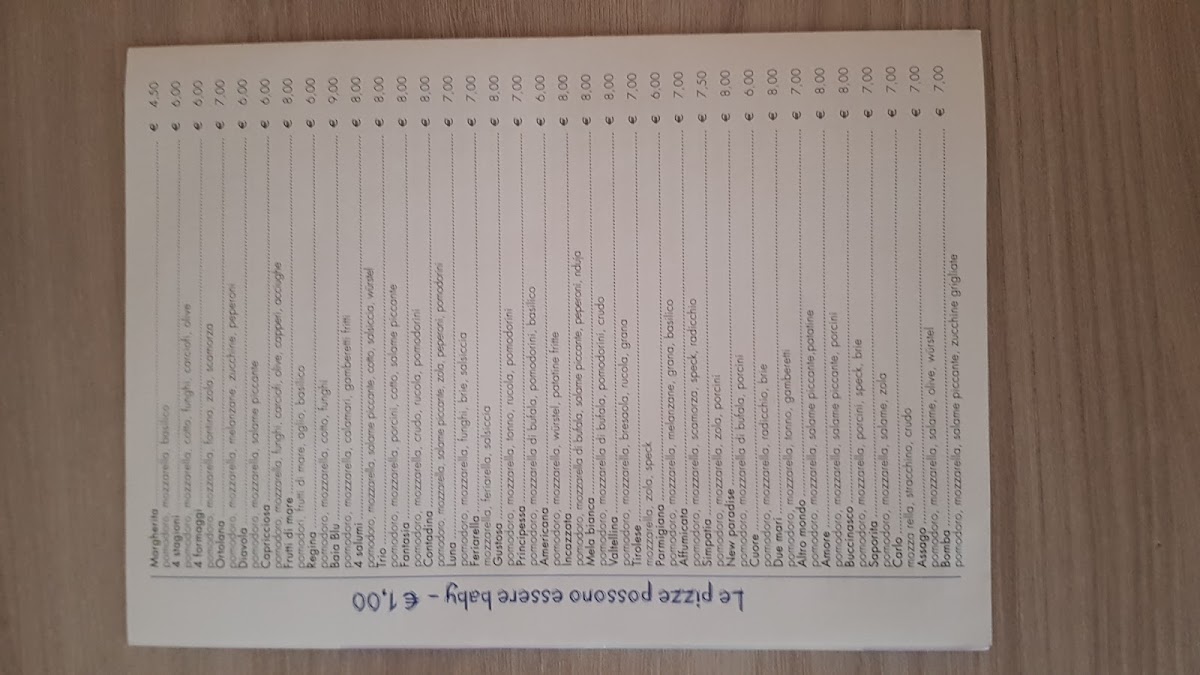 Le pizze possono essere baby – € 1,00
Margherita ........ € 4,50
pomodoro, mozzarella, basilico
4 stagioni ........ € 6,00
pomodoro, mozzarella, cotto, funghi, carciofi, olive
4 formaggi ........ € 6,00
pomodoro, mozzarella, fontina, zola, scamorza
Ortolana ........ € 7,00
pomodoro, mozzarella, melanzane, zucchine, peperoni
Diavola ........ € 6,00
pomodoro, mozzarella, salame piccante
Capricciosa ........ € 6,00
pomodoro, mozzarella, funghi, carciofi, olive, capperi, acciughe
Frutti di mare ........ € 8,00
pomodori, frutti di mare, aglio, basilico
Regina ........ € 6,00
pomodoro, mozzarella, cotto, funghi
Baia Blu ........ € 9,00
pomodoro, mozzarella, calamari, gamberetti fritti
4 salumi ........ € 8,00
pomodoro, mozzarella, salame piccante, cotto, salsiccia, würstel
Trio ........ € 8,00
pomodoro, mozzarella, porcini, cotto, salame piccante
Fantasia ........ € 8,00
pomodoro, mozzarella, crudo, rucola, pomodorini
Contadina ........ € 8,00
pomodoro, mozzarella, salame piccante, zola, peperoni, pomodorini
Luna ........ € 7,00
pomodoro, mozzarella, funghi, brie, salsiccia
Feriarella ........ € 7,00
mozzarella, feriarella, salsiccia
Gustosa ........ € 8,00
pomodoro, mozzarella, tonno, rucola, pomodorini
Principessa ........ € 7,00
pomodoro, mozzarella di bufala, pomodorini, basilico
Americana ........ € 6,00
pomodoro, mozzarella, würstel, patatine fritte
Incazzata ........ € 8,00
pomodoro, mozzarella di bufala, salame piccante, peperoni, nduja
Mela bianca ........ € 8,00
pomodoro, mozzarella di bufala, pomodorini, crudo
Valtellina ........ € 8,00
pomodoro, mozzarella, bresaola, rucola, grana
Tirolese ........ € 7,00
mozzarella, zola, speck
Parmigiana ........ € 6,00
pomodoro, mozzarella, melanzane, grana, basilico
Affumicata ........ € 7,00
pomodoro, mozzarella, scamorza, speck, radicchio
Simpatia ........ € 7,50
pomodoro, mozzarella, zola, porcini
New paradise ........ € 8,00
pomodoro, mozzarella di bufala, porcini
Cuore ........ € 6,00
pomodoro, mozzarella, radicchio, brie
Due mari ........ € 8,00
pomodoro, mozzarella, tonno, gamberetti
Altro mondo ........ € 7,00
pomodoro, mozzarella, salame piccante,patatine
Amore ........ € 8,00
pomodoro, mozzarella, salame piccante, porcini
Buccinasco ........ € 8,00
pomodoro, mozzarella, porcini, speck, brie
Saporita ........ € 7,00
pomodoro, mozzarella, salame, zola
Carlo ........ € 7,00
mozza rella, stracchino, crudo
Assago ........ € 7,00
pomodoro, mozzarella, salame, olive, würstel
Bomba ........ € 7,00
pomodoro, mozzarella, salame piccante, zucchine grigliate